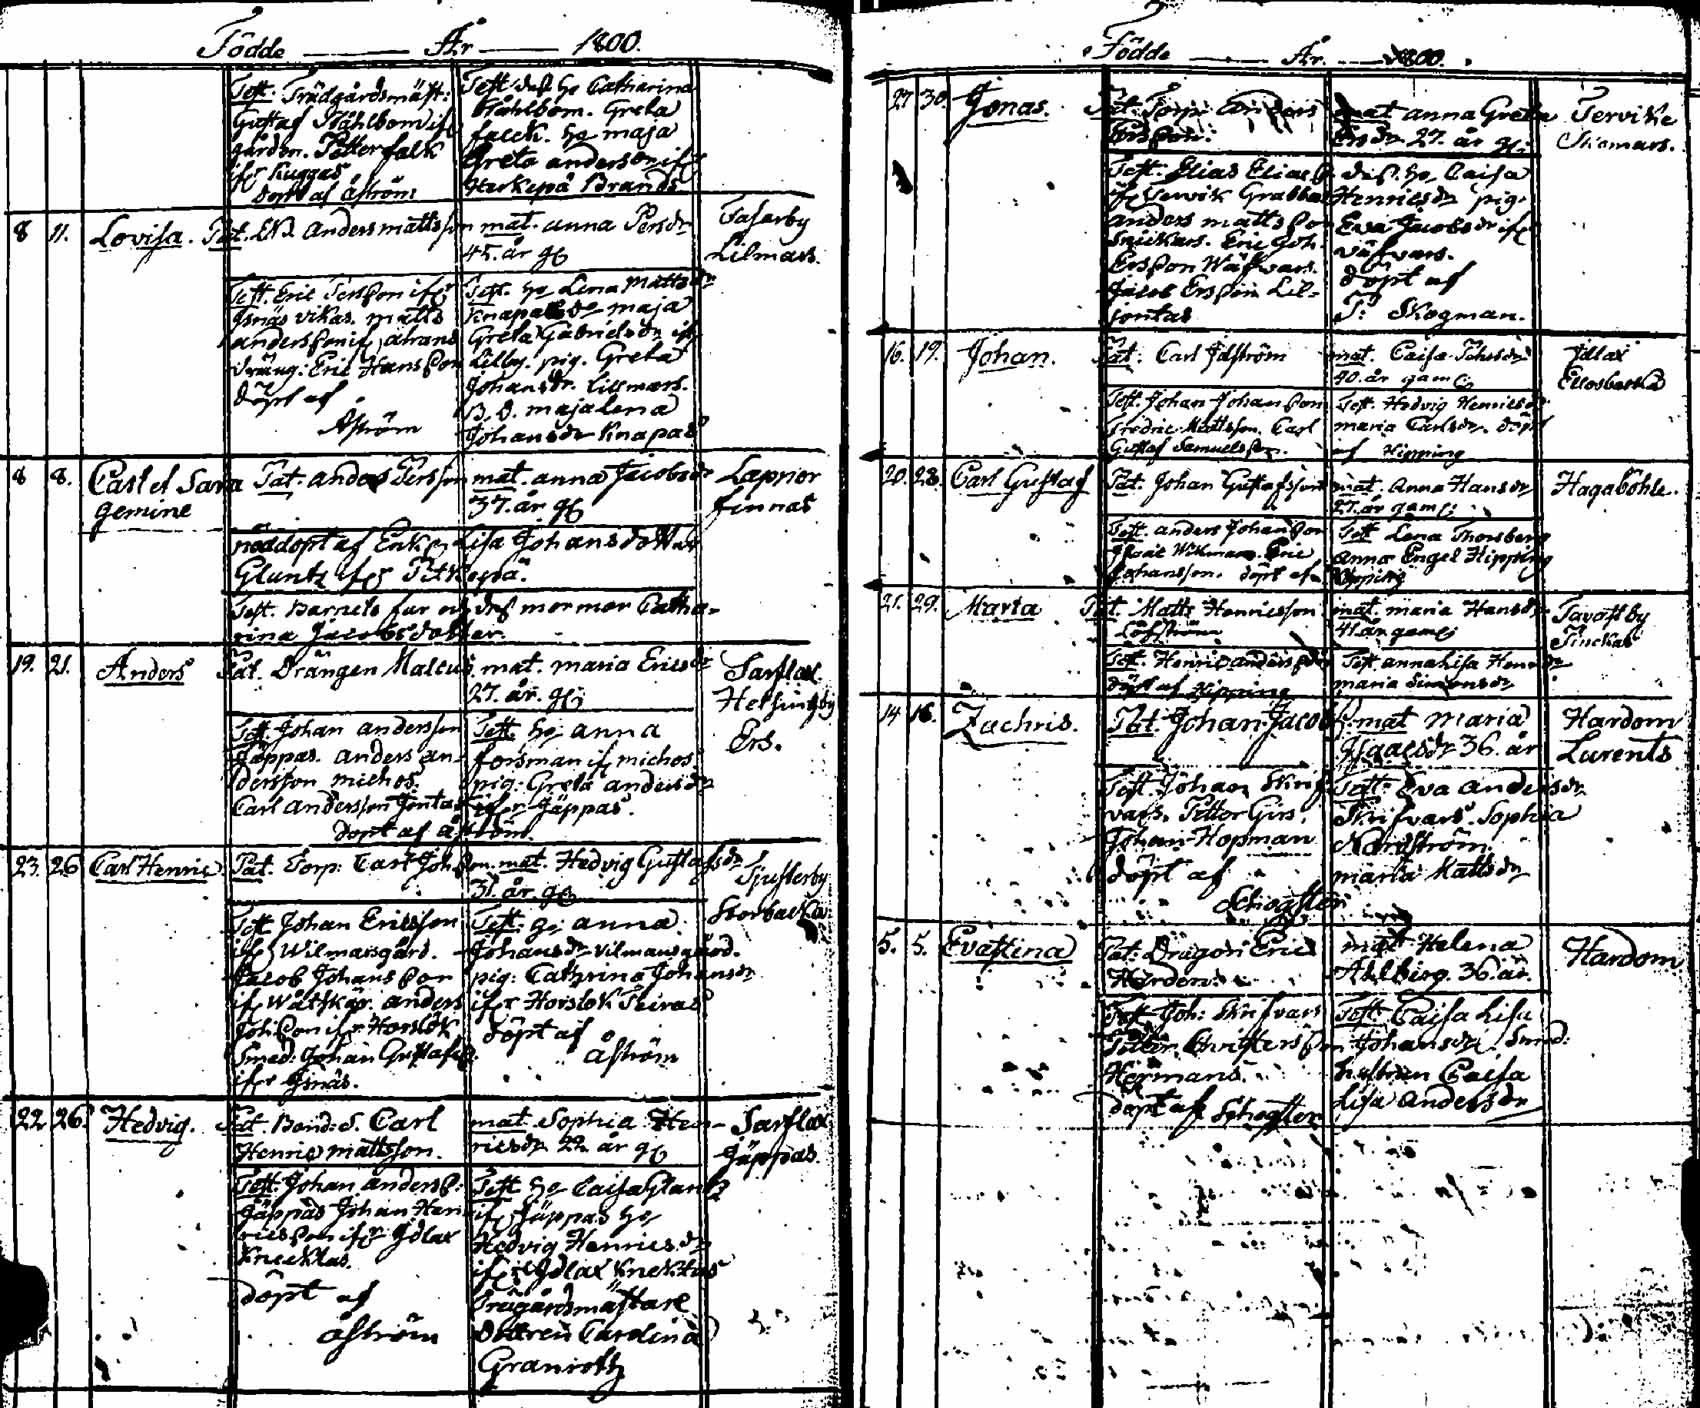 Födde År 1800.
Test. Trädgårdsmäst: Test. dess h: Catharina
Gustaf Ståhlbom ifr Ståhlbom. Greta
gården. Petter falk falck. h: maja
ifr Kuggas Greta andersdr ifr
döpt af åström Brands
8 11. Lovisa. Pat. Anders mattsson mat. anna Persdr Tasarby
45. år Lilmars.
Test. Eric Persson ifr Test. h: Lena Mattsdr
Isnäs vikas. matts Knapas maja
andersson Greta Gabrielsdr
dräng: Eric Hansson Lillby. pig. Greta
döpt af Johansdr. Lillmars.
Åström maja Lena
Johansdr Knapas
8 8. Carl et Sara Pat. anders Persson mat. anna Jacobsdr Laprior
gemine 37. år finnas
nöddopt af Enk. Lisa Johansdotter
Gluntz ifr Pitkepä.
Test. Barnets far och dess mormor Catha-
rina Jacobsdotter.
19. 21. Anders Pat. Drängen Malcus mat. maria Ericsdr Sarflax
27. år Helsingby
Ers.
Test. Johan andersson Test. h: anna
Jäppas. anders an- forsman ifr michos
dersson michos pig: Greta andersdr
Carl andersson Jontas ifr Jäppas.
döpt af åström.
23. 26 Carl Henric Pat. Torp: Carl Johsson. mat. Hedvig Gustafsdr Sjusterby
31. år Storbacka
Test. Johan Ericsson Test. h: anna
ifr Wilmarsgård. Johansdr Vilmansgård.
Jacob Johansson pig: Cathrina Johansdr
ifr Wätskär. anders ifr Horslök Peiras
Johsson ifr Horslök döpt af
Smed: Johan Gustafss. åström
ifr Isnäs.
22 26. Hedvig. Pat. Bond. S. Carl mat. Sophia Hen- Sarflax
Henric mattsson. ricsdr 22 år Jäppas.
Test. Johan anderss: Test. h: Caisa Glantz
Jäppas Johan Hen ifr Jäppas h:
ricsson ifr Idlax Hedvig Henricsdr
Knecktas. ifr Idlax Knektas
döpt af Trägårdsmästare
åström dottren Carolina
Granroth
Födde År 1800.
27 30 Jonas. Pat. Torp: Anders mat anna Greta Tervike
Ersson. Ersdr 27. år Thomars.
Test. Elias Eliass. dess. h: Caisa
ifr Tervik Grabbas Henricsdr pig.
anders mattsson Eva Jacobsdr ifr
Snickars. Eric Joh. Väfvars.
Ersson Wäfvars. döpt af
Jacob Ersson Lil- P: Skogman.
jontas
16. 19. Johan. Pat. Carl Idström mat. Caisa Idlax
40. år gam: Ellosbacka
Test. Johan Johansson Test. Hedvig Henricsdr
Fredric Mattsson. Carl maria Carlsdr. döpt
Gustaf Samuelsson. af Hipping
20. 23. Carl Gustaf Pat. Johan Gustafsson mat. Anna Hansdr Hagaböhle.
27. år gam:
Test. anders Johansson Test. Lena Thorsberg
Wikman. Eric Anna Engel Hipping
Johansson. döpt af Hipping
21. 29. Maria Pat. Matts Henricsson mat. maria Hansdr Tavastby
Löfström 41. år gam: Finckas
Test. Henric andersson Test anna Lisa Hen
döpt af Hipping maria Simonsdr
14 16. Zachris. Pat. Johan Jacobs. mat maria Hardom
Isaacsdr 36. år Lurents
Test. Johan Skrif Test. Eva andersdr
vars. Petter Girs. Skrifvars. Sophia
Johan Hopman Nordström
döpt af maria Mattsdr
Schogster
5. 5. Evastina Pat. Dragon Eric mat Helena Hardom
Hårdom. Ahlberg. 36. år.
Test. Joh: Skrifvars Test. Caisa Lisa
Petter. Christersson Johansdr. Smed:
Hermans. hustrun Caisa
döpt af Schogster Lisa Andersdr